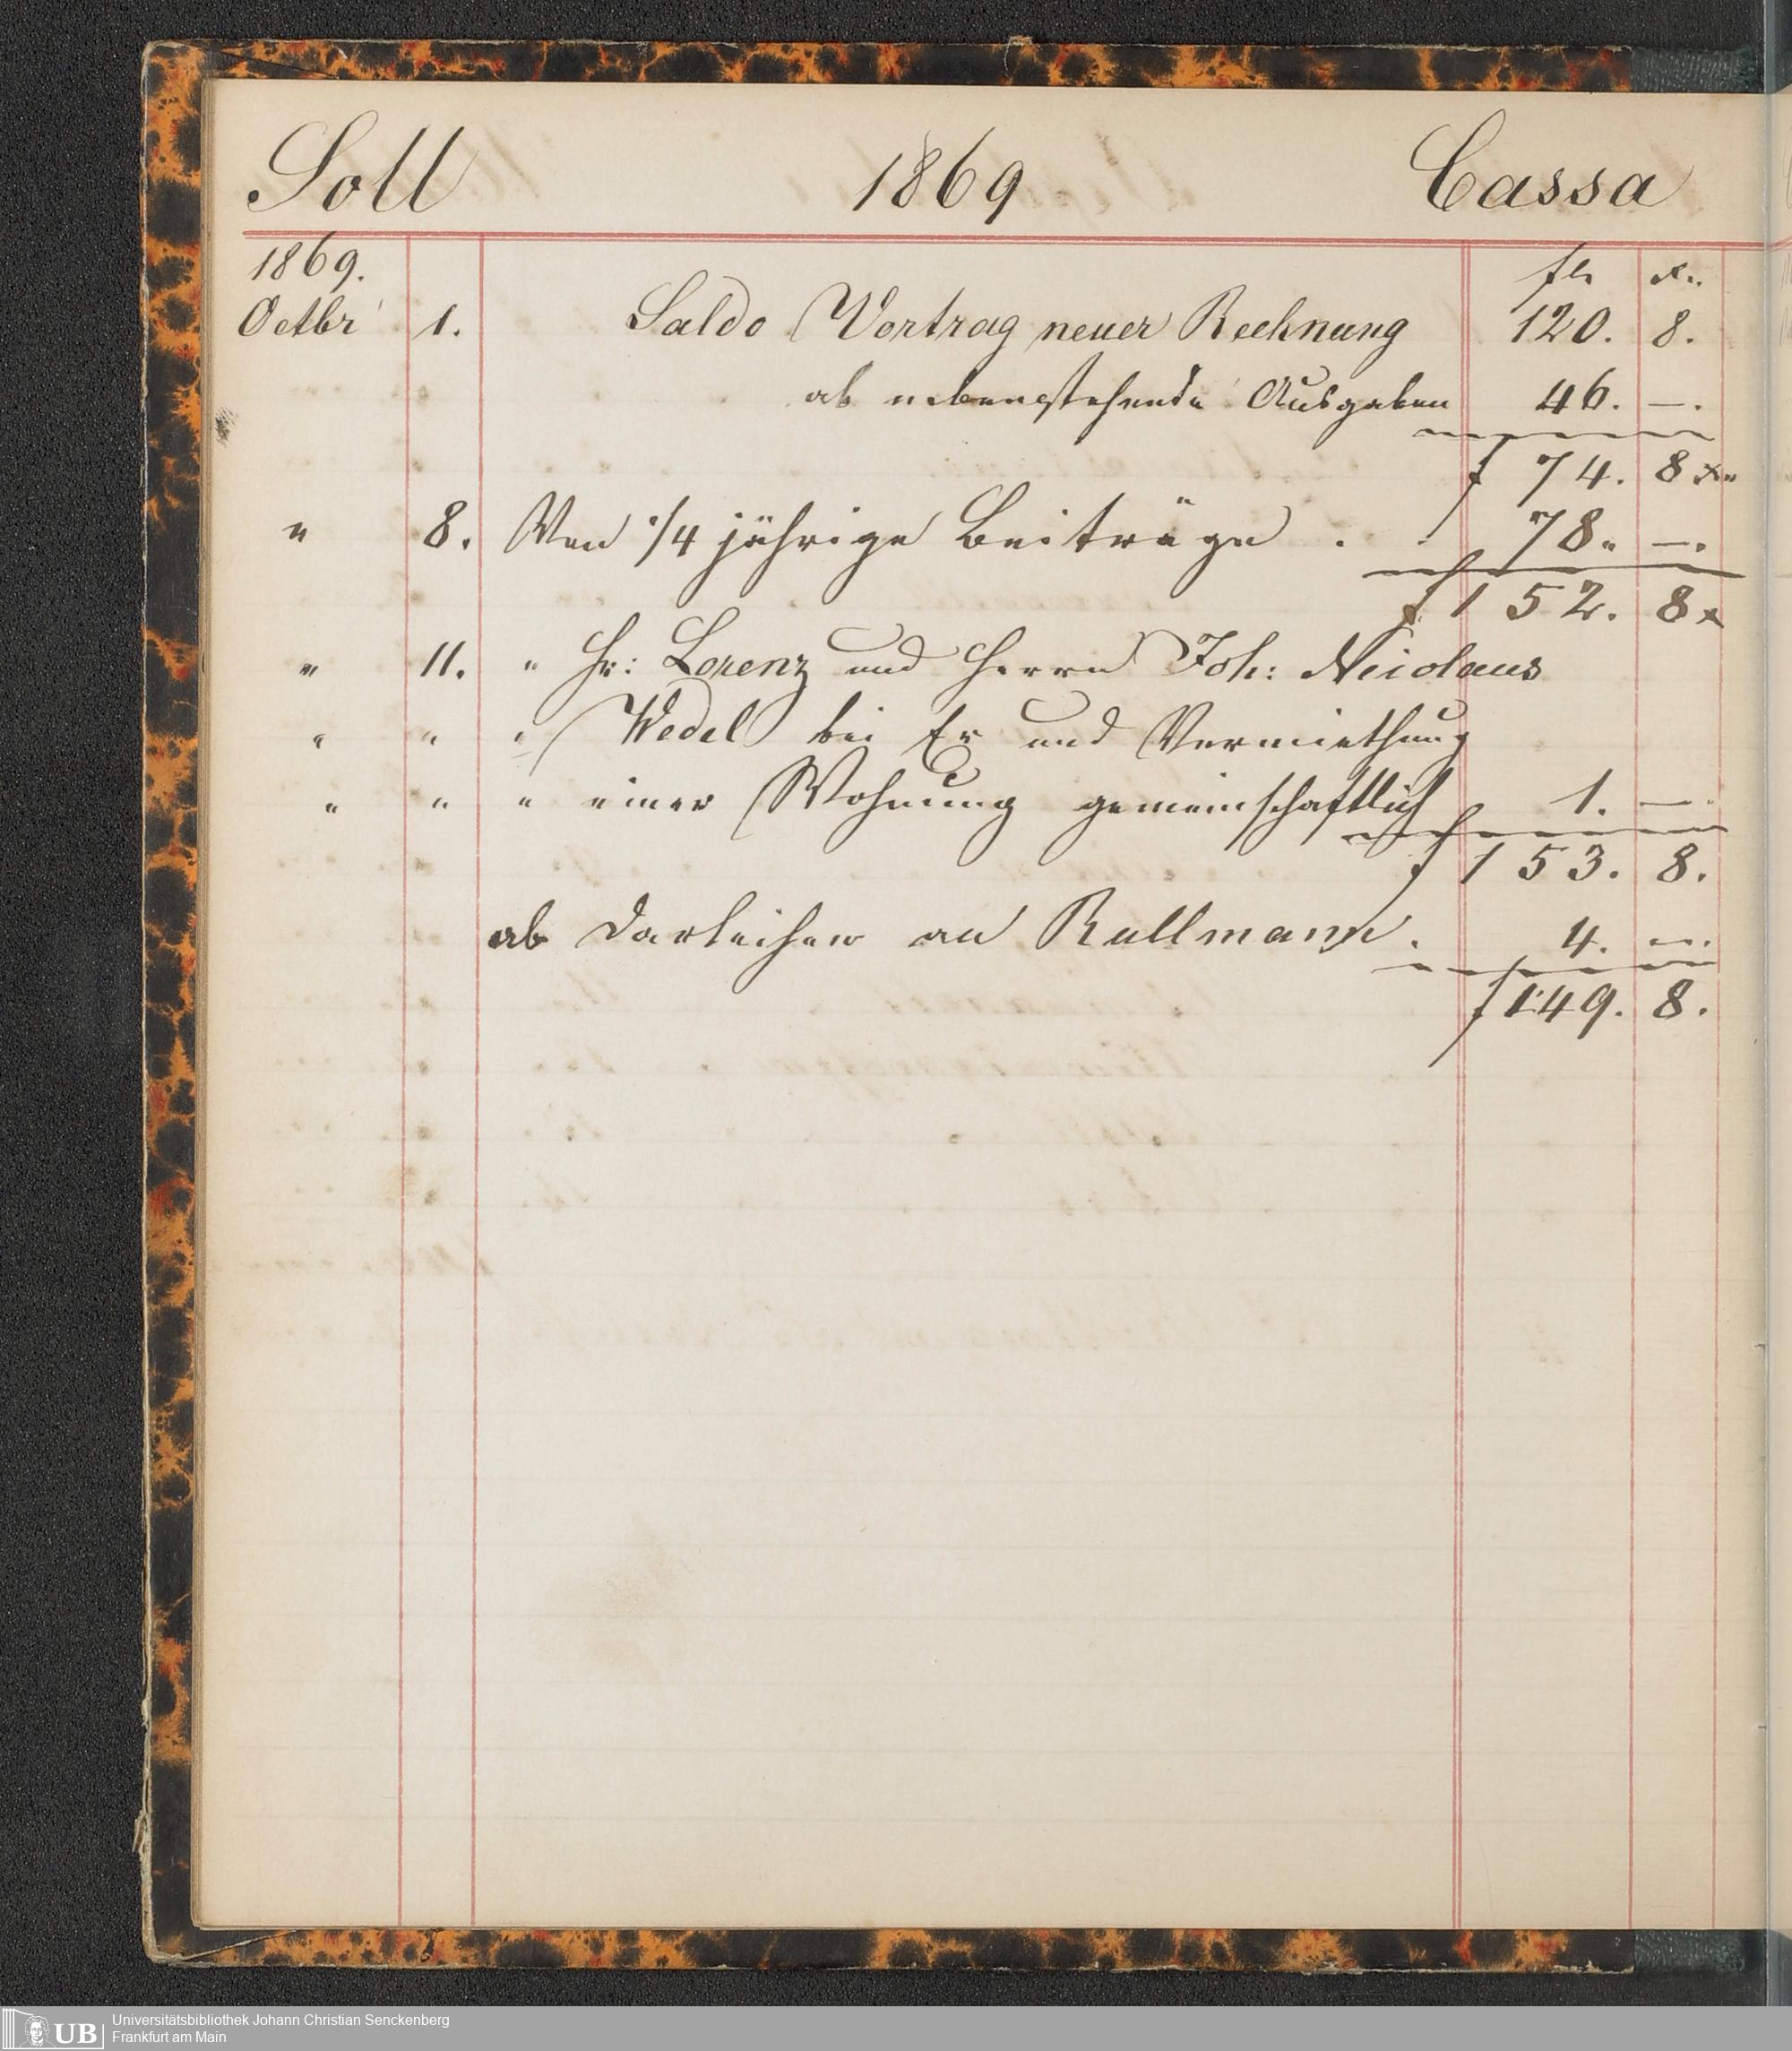 Soll 1869 Cassa
1869. fl. x.
Octbr 1. Saldo Vortrag neuer Rechnung 120. 8.
ab nebenstehende Ausgaben 46. —.
f 74. 8 x.
" 8. Von 1/4 jährige Beiträge . . 78. —.
f 152. 8 x
" 11. " Hr: Lorenz und Herrn Joh: Nicolaus
" " " Wedel bei Er und Vermiethung
" " " einer Wohnung gemeinschaftlich 1. —.
f 153. 8.
ab Darleihen an Rullmann. 4. —.
f 149. 8.
UB Universitätsbibliothek Johann Christian Senckenberg
Frankfurt am Main